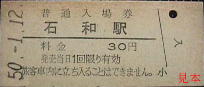 50.-1.12
普通入場券
石和駅
料金 30円
発売当日1回限り有効
旅客車内に立ち入ることはできません。
入
小
見本